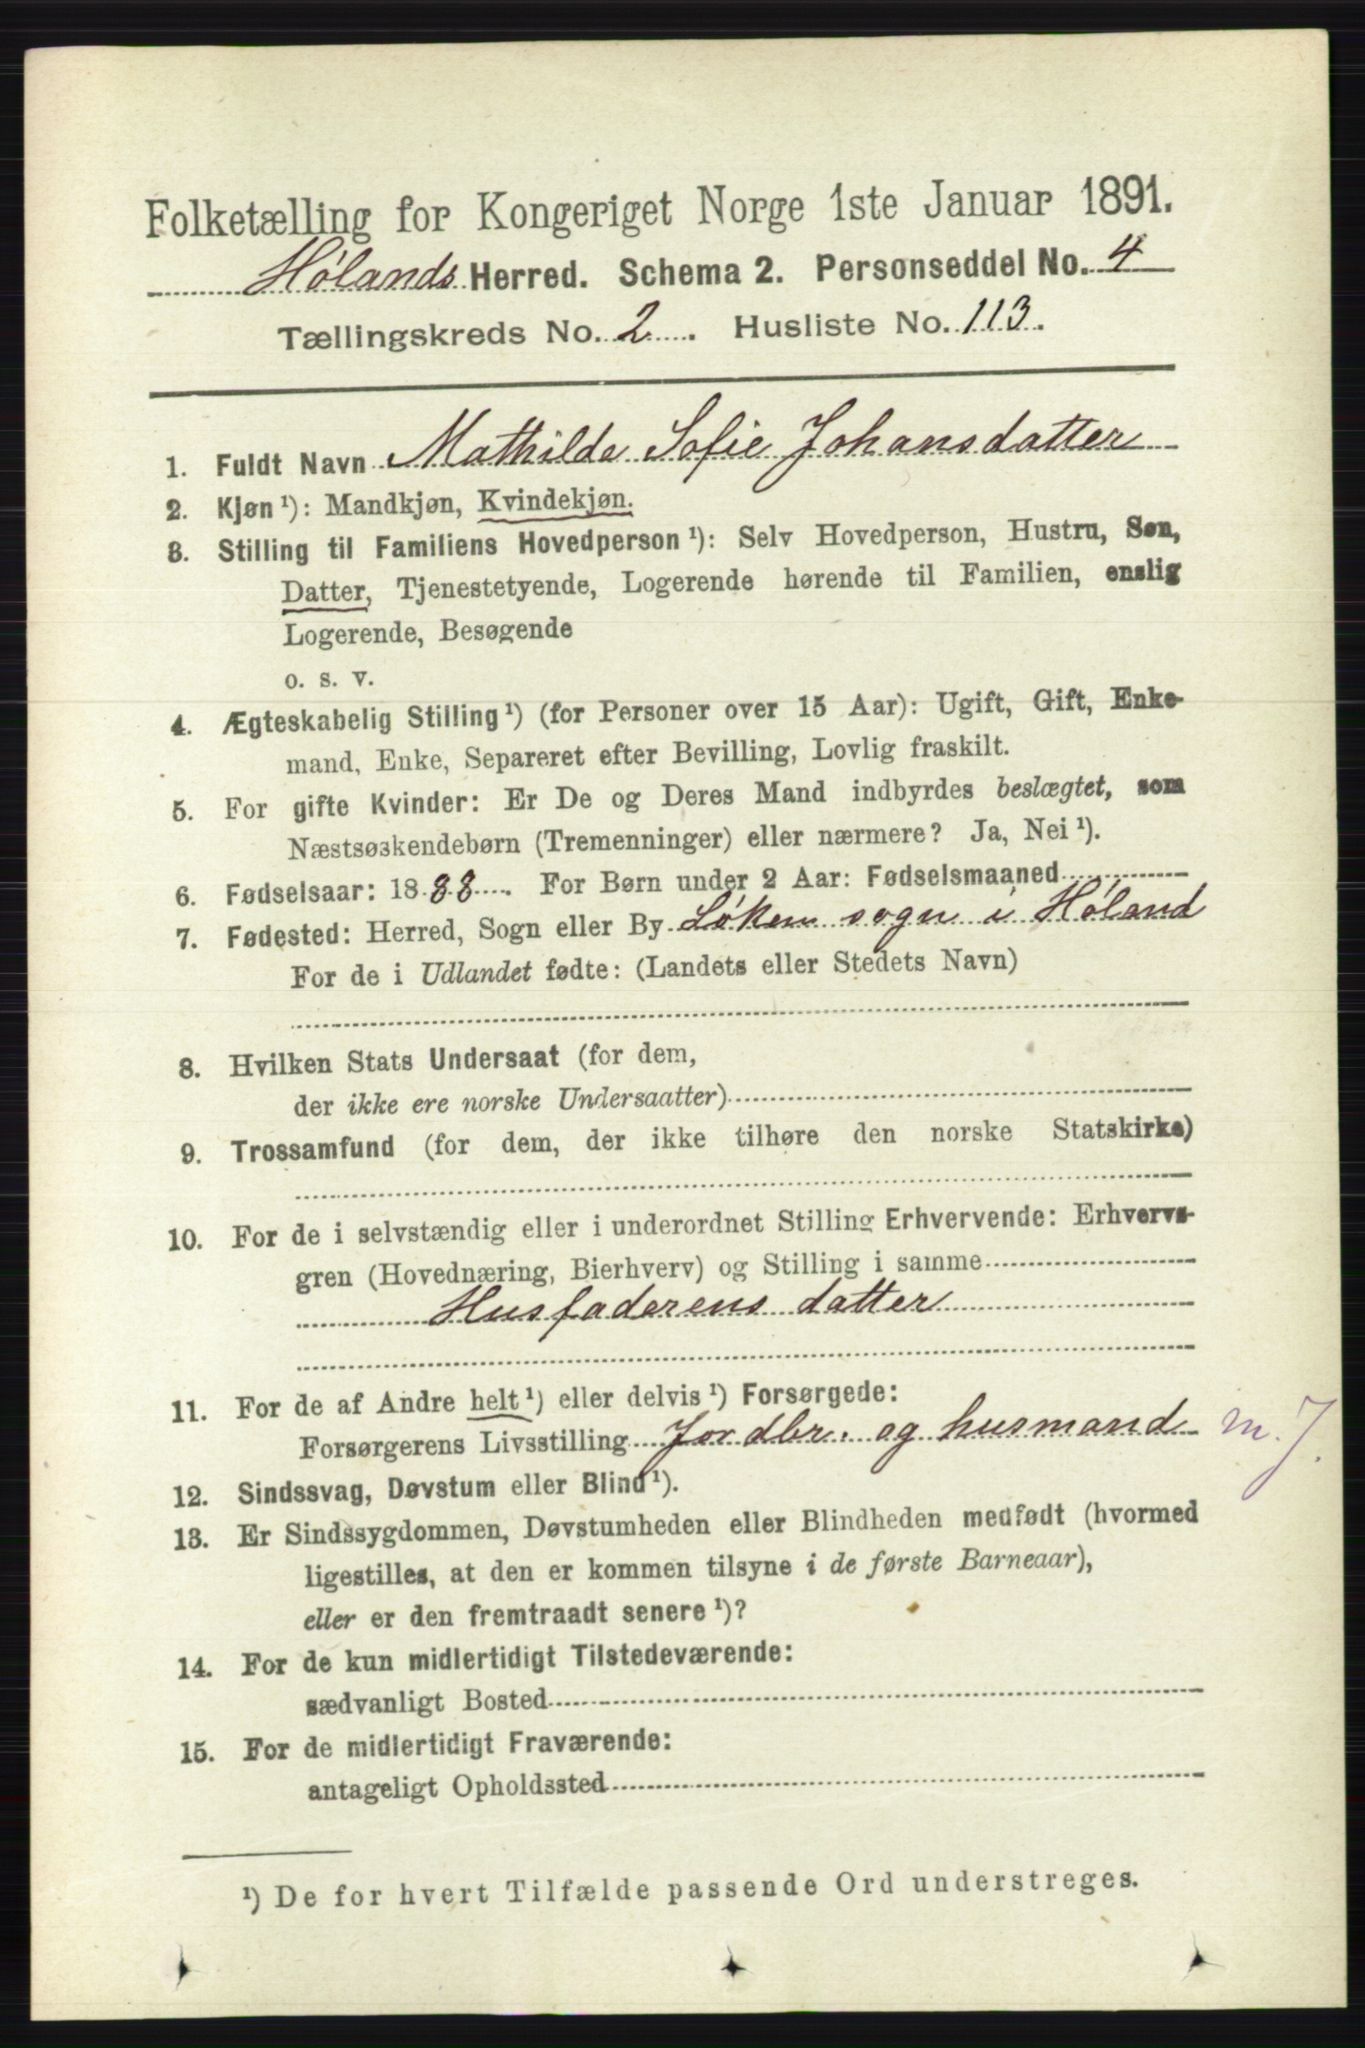 Folketælling for Kongeriget Norge 1ste Januar 1891.
Hølands Herred. Schema 2. Personseddel No. 4
Tællingskreds No. 2. Husliste No. 113.
1. Fuldt Navn Mathilde Sofie Johansdatter
2. Kjøn ¹): Mandkjøn, Kvindekjøn.
3. Stilling til Familiens Hovedperson ¹): Selv Hovedperson, Hustru, Søn,
Datter, Tjenestetyende, Logerende hørende til Familien, enslig
Logerende, Besøgende
o. s. v.
4. Ægteskabelig Stilling ¹) (for Personer over 15 Aar): Ugift, Gift, Enke-
mand, Enke, Separeret efter Bevilling, Lovlig fraskilt.
5. For gifte Kvinder: Er De og Deres Mand indbyrdes beslægtet, som
Næstsøskendebørn (Tremenninger) eller nærmere? Ja, Nei ¹).
6. Fødselsaar: 1888. For Børn under 2 Aar: Fødselsmaaned
7. Fødested: Herred, Sogn eller By Løken sogn i Høland
For de i Udlandet fødte: (Landets eller Stedets Navn)
8. Hvilken Stats Undersaat (for dem,
der ikke ere norske Undersaatter)
9. Trossamfund (for dem, der ikke tilhøre den norske Statskirke)
10. For de i selvstændig eller i underordnet Stilling Erhvervende: Erhvervs-
gren (Hovednæring, Bierhverv) og Stilling i samme
Husfaderens datter
11. For de af Andre helt ¹) eller delvis ¹) Forsørgede:
Forsørgerens Livsstilling Jordbr. og husmand m. J.
12. Sindssvag, Døvstum eller Blind ¹).
13. Er Sindssygdommen, Døvstumheden eller Blindheden medfødt (hvormed
ligestilles, at den er kommen tilsyne i de første Barneaar),
eller er den fremtraadt senere ¹)?
14. For de kun midlertidigt Tilstedeværende:
sædvanligt Bosted
15. For de midlertidigt Fraværende:
antageligt Opholdssted
¹) De for hvert Tilfælde passende Ord understreges.